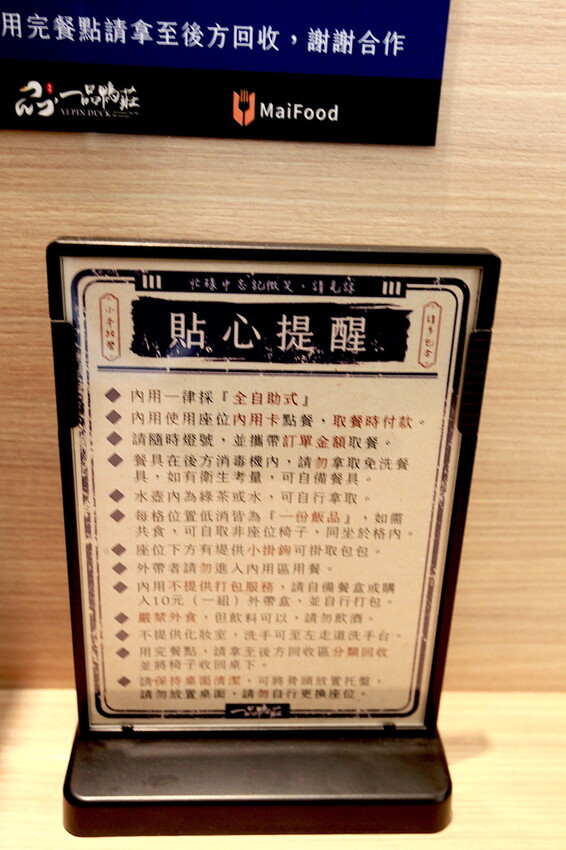 用完餐點請拿至後方回收，謝謝合作
一品鴨莊
YI PIN DUCK
MaiFood
忙碌中忘記微笑，請見諒
貼心提醒
請多包含
內用一律採『全自助式』
內用使用座位內用卡點餐，取餐時付款。
請隨時燈號，並攜帶訂單金額取餐。
餐具在後方消毒機內，請勿拿取免洗餐
具，如有衛生考量，可自備餐具。
水壺內為綠茶或水，可自行拿取。
每格位置低消皆為『一份飯品』，如需
共食，可自取非座位椅子，同坐於格內。
座位下方有提供小掛鉤可掛取包包。
外帶者請勿進入內用區用餐。
內用不提供打包服務，請自備餐盒或購
入10元（一組）外帶盒，並自行打包。
嚴禁外食，但飲料可以，請勿飲酒。
不提供化妝室，洗手可至左走道洗手台。
用完餐點，請拿至後方回收區分類回收
並將椅子收回桌下。
請保持桌面清潔，可將骨頭放置托盤，
請勿放置桌面，請勿自行更換座位。
一品鴨莊